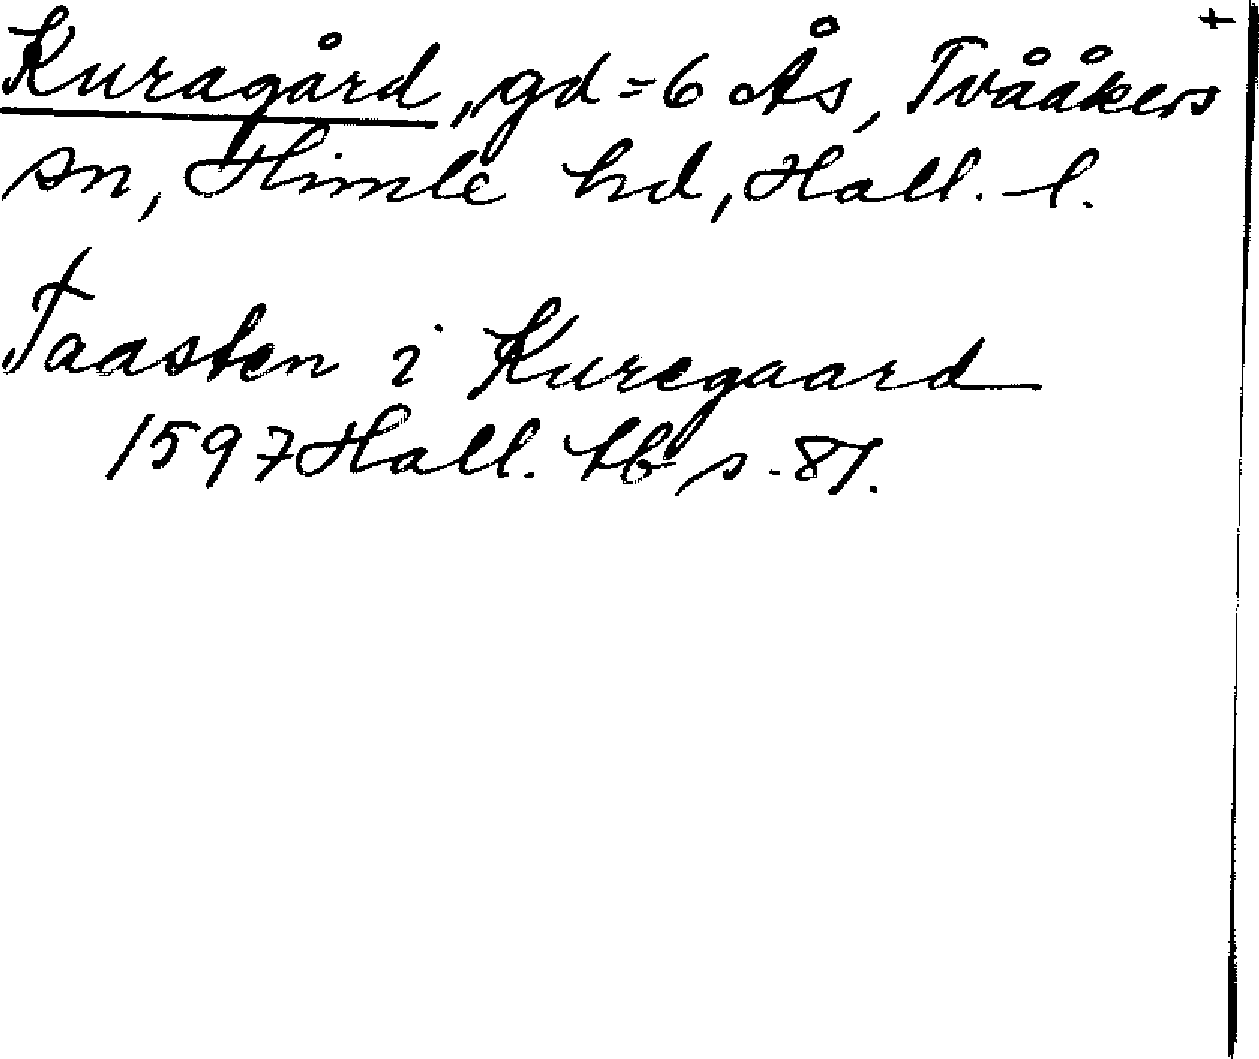 †
Kuragård, gd = 6 Ås, Tvååkers
sn, Himle hd, Hall. l.
Taasten i Kuregaard
1597 Hall. tb s. 81.